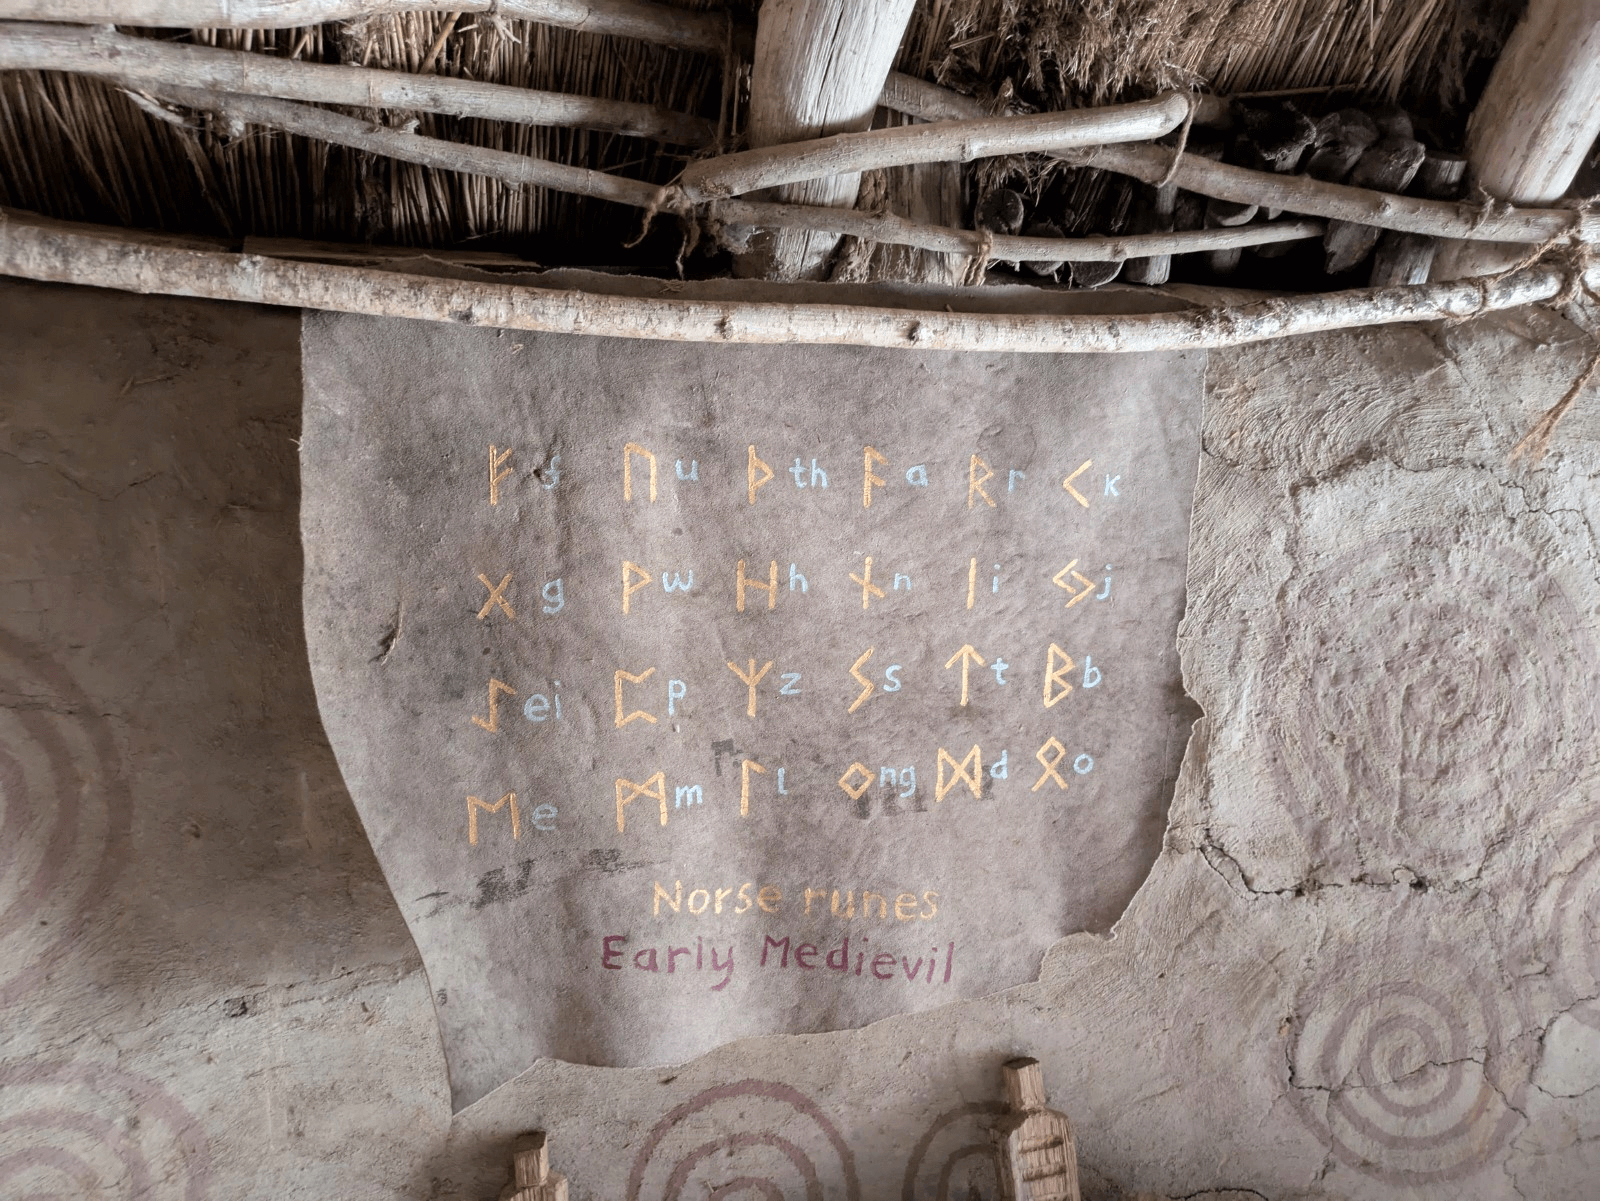 ᚠ f ᚢ u ᚦ th ᚨ a ᚱ r ᚲ k
ᚷ g ᚹ w ᚺ h ᚾ n ᛁ i ᛃ j
ᛇ ei ᛈ p ᛉ z ᛊ s ᛏ t ᛒ b
ᛖ e ᛗ m ᛚ l ᛜ ng ᛞ d ᛟ o
Norse runes
Early Medievil